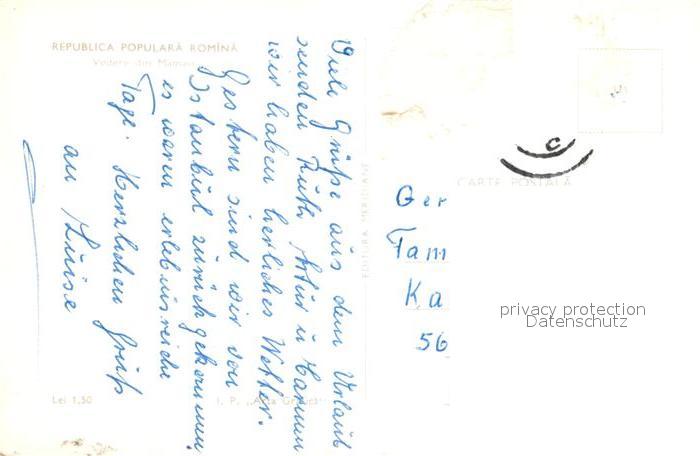 REPUBLICA POPULARĂ ROMÎNĂ
Vedere din Mamaia
Viele Grüße aus dem Urlaub
senden Ruth Artur u.
wir haben herrliches Wetter.
Gestern sind wir von
Istanbul zurückgekommen,
es waren erlebnisreiche
Tage. Herzlichen Gruß
an Luise
Lei 1,50
I. P. „Arta Grafică"
EDITURA MERIDIANE
CARTE POSTALĂ
C
Ger
Fam
Ka
56
privacy protection
Datenschutz